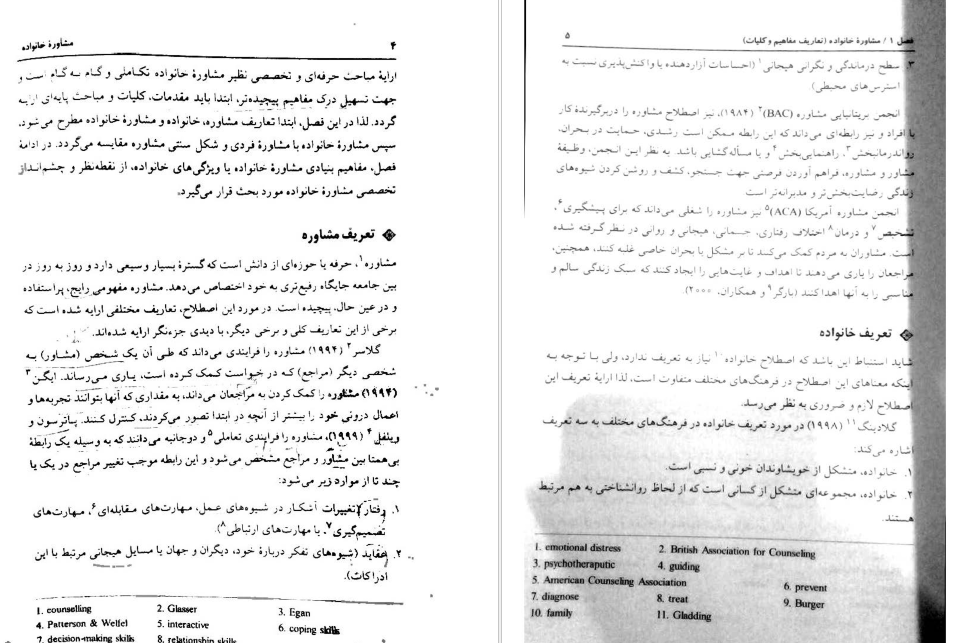 ۴ مشاورهٔ خانواده
ارایهٔ مباحث حرفه‌ای و تخصصی نظیر مشاورهٔ خانواده تکاملی و گام به گام است و
جهت تسهیل درک مفاهیم پیچیده‌تر، ابتدا باید مقدمات، کلیات و مباحث پایه‌ای ارایه
گردد. لذا در این فصل، ابتدا تعاریف مشاوره، خانواده و مشاورهٔ خانواده مطرح می‌شود،
سپس مشاورهٔ خانواده با مشاورهٔ فردی و شکل سنتی مشاوره مقایسه می‌گردد. در ادامهٔ
فصل، مفاهیم بنیادی مشاورهٔ خانواده یا ویژگی‌های خانواده، از نقطه‌نظر و چشم‌انداز
تخصصی مشاورهٔ خانواده مورد بحث قرار می‌گیرد.
تعریف مشاوره
مشاوره۱، حرفه یا حوزه‌ای از دانش است که گسترهٔ بسیار وسیعی دارد و روز به روز در
بین جامعه جایگاه رفیع‌تری به خود اختصاص می‌دهد. مشاوره مفهومی رایج، پراستفاده
و در عین حال، پیچیده است. در مورد این اصطلاح، تعاریف مختلفی ارایه شده است که
برخی از این تعاریف کلی و برخی دیگر، با دیدی جزءنگر ارایه شده‌اند.
گلاسر۲ (۱۹۹۴) مشاوره را فرایندی می‌داند که طی آن یک شخص (مشاور) به
شخصی دیگر (مراجع) که در خواست کمک کرده است، یاری می‌رساند. ایگن۳
(۱۹۹۴) مشاوره را کمک کردن به مراجعان می‌داند، به مقداری که آنها بتوانند تجربه‌ها و
اعمال درونی خود را بیشتر از آنچه در ابتدا تصور می‌کردند، کنترل کنند. پاترسون و
ویلفل۴ (۱۹۹۹)، مشاوره را فرایندی تعاملی۵ و دوجانبه می‌دانند که به وسیله یک رابطهٔ
بی‌همتا بین مشاور و مراجع مشخص می‌شود و این رابطه موجب تغییر مراجع در یک یا
چند تا از موارد زیر می‌شود:
۱. رفتار (تغییرات آشکار در شیوه‌های عمل، مهارت‌های مقابله‌ای۶، مهارت‌های
تصمیم‌گیری۷، یا مهارت‌های ارتباطی۸).
۲. عقاید (شیوه‌های تفکر دربارهٔ خود، دیگران و جهان یا مسایل هیجانی مرتبط با این
ادراکات).
1. counselling 2. Glasser 3. Egan
4. Patterson & Welfel 5. interactive 6. coping skills
7. decision-making skills 8. relationship skills
فصل ۱ / مشاورهٔ خانواده (تعاریف مفاهیم و کلیات) ۵
۳. سطح درماندگی و نگرانی هیجانی۱ (احساسات آزاردهنده یا واکنش‌پذیری نسبت به
استرس‌های محیطی)
انجمن بریتانیایی مشاوره (BAC)۲ (۱۹۸۴)، نیز اصطلاح مشاوره را دربرگیرندهٔ کار
با افراد و نیز رابطه‌ای می‌داند که این رابطه ممکن است رشدی، حمایت در بحران،
رواندرمانبخش۳، راهنمایی‌بخش۴ و یا مسأله‌گشایی باشد. به نظر این انجمن، وظیفهٔ
مشاور و مشاوره، فراهم آوردن فرصتی جهت جستجو، کشف و روشن کردن شیوه‌های
زندگی رضایت‌بخش‌تر و مدبرانه‌تر است
انجمن مشاوره آمریکا (ACA)۵ نیز مشاوره را شغلی می‌داند که برای پیشگیری۶،
تشخیص۷ و درمان۸ اختلاف رفتاری، جسمانی، هیجانی و روانی در نظر گرفته شده
است. مشاوران به مردم کمک می‌کنند تا بر مشکل یا بحران خاصی غلبه کنند، همچنین،
مراجعان را یاری می‌دهند تا اهداف و غایت‌هایی را ایجاد کنند که سبک زندگی سالم و
مناسبی را به آنها اهدا کنند (بارگر۹ و همکاران، ۲۰۰۰).
تعریف خانواده
شاید استنباط این باشد که اصطلاح خانواده۱۰ نیاز به تعریف ندارد، ولی با توجه به
اینکه معناهای این اصطلاح در فرهنگ‌های مختلف متفاوت است، لذا ارایهٔ تعریف این
اصطلاح لازم و ضروری به نظر می‌رسد.
گلادینگ۱۱ (۱۹۹۸) در مورد تعریف خانواده در فرهنگ‌های مختلف به سه تعریف
اشاره می‌کند:
۱. خانواده، متشکل از خویشاوندان خونی و نسبی است.
۲. خانواده، مجموعه‌ای متشکل از کسانی است که از لحاظ روانشناختی به هم مرتبط
هستند.
1. emotional distress 2. British Association for Counseling
3. psychotheraputic 4. guiding
5. American Counseling Association 6. prevent
7. diagnose 8. treat 9. Burger
10. family 11. Gladding